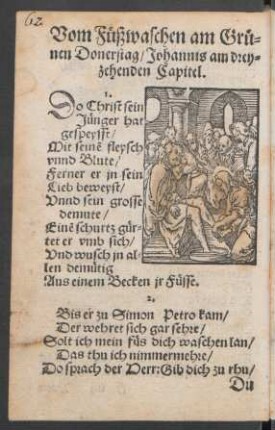 62
Vom Füßwaschen am Grü-
nen Donerstag/Johannis am drey-
zehenden Capitel.
1.
Do Christ sein
Jünger hat
gespeysst/
Mit seinē fleysch
vnnd Blute/
Ferner er jn sein
Lieb beweyst/
Vnnd sein grosse
demute/
Einē schurtz gür-
tet er vmb sich/
Vnd wusch jn al-
len demütig
Aus einem Becken jr Füsse.
2.
Bis er zu Simon Petro kam/
Der wehret sich gar sehre/
Solt ich mein füs dich waschen lan/
Das thu ich nimmermehre/
Do sprach der Herr: Gib dich zu rhu/
Du